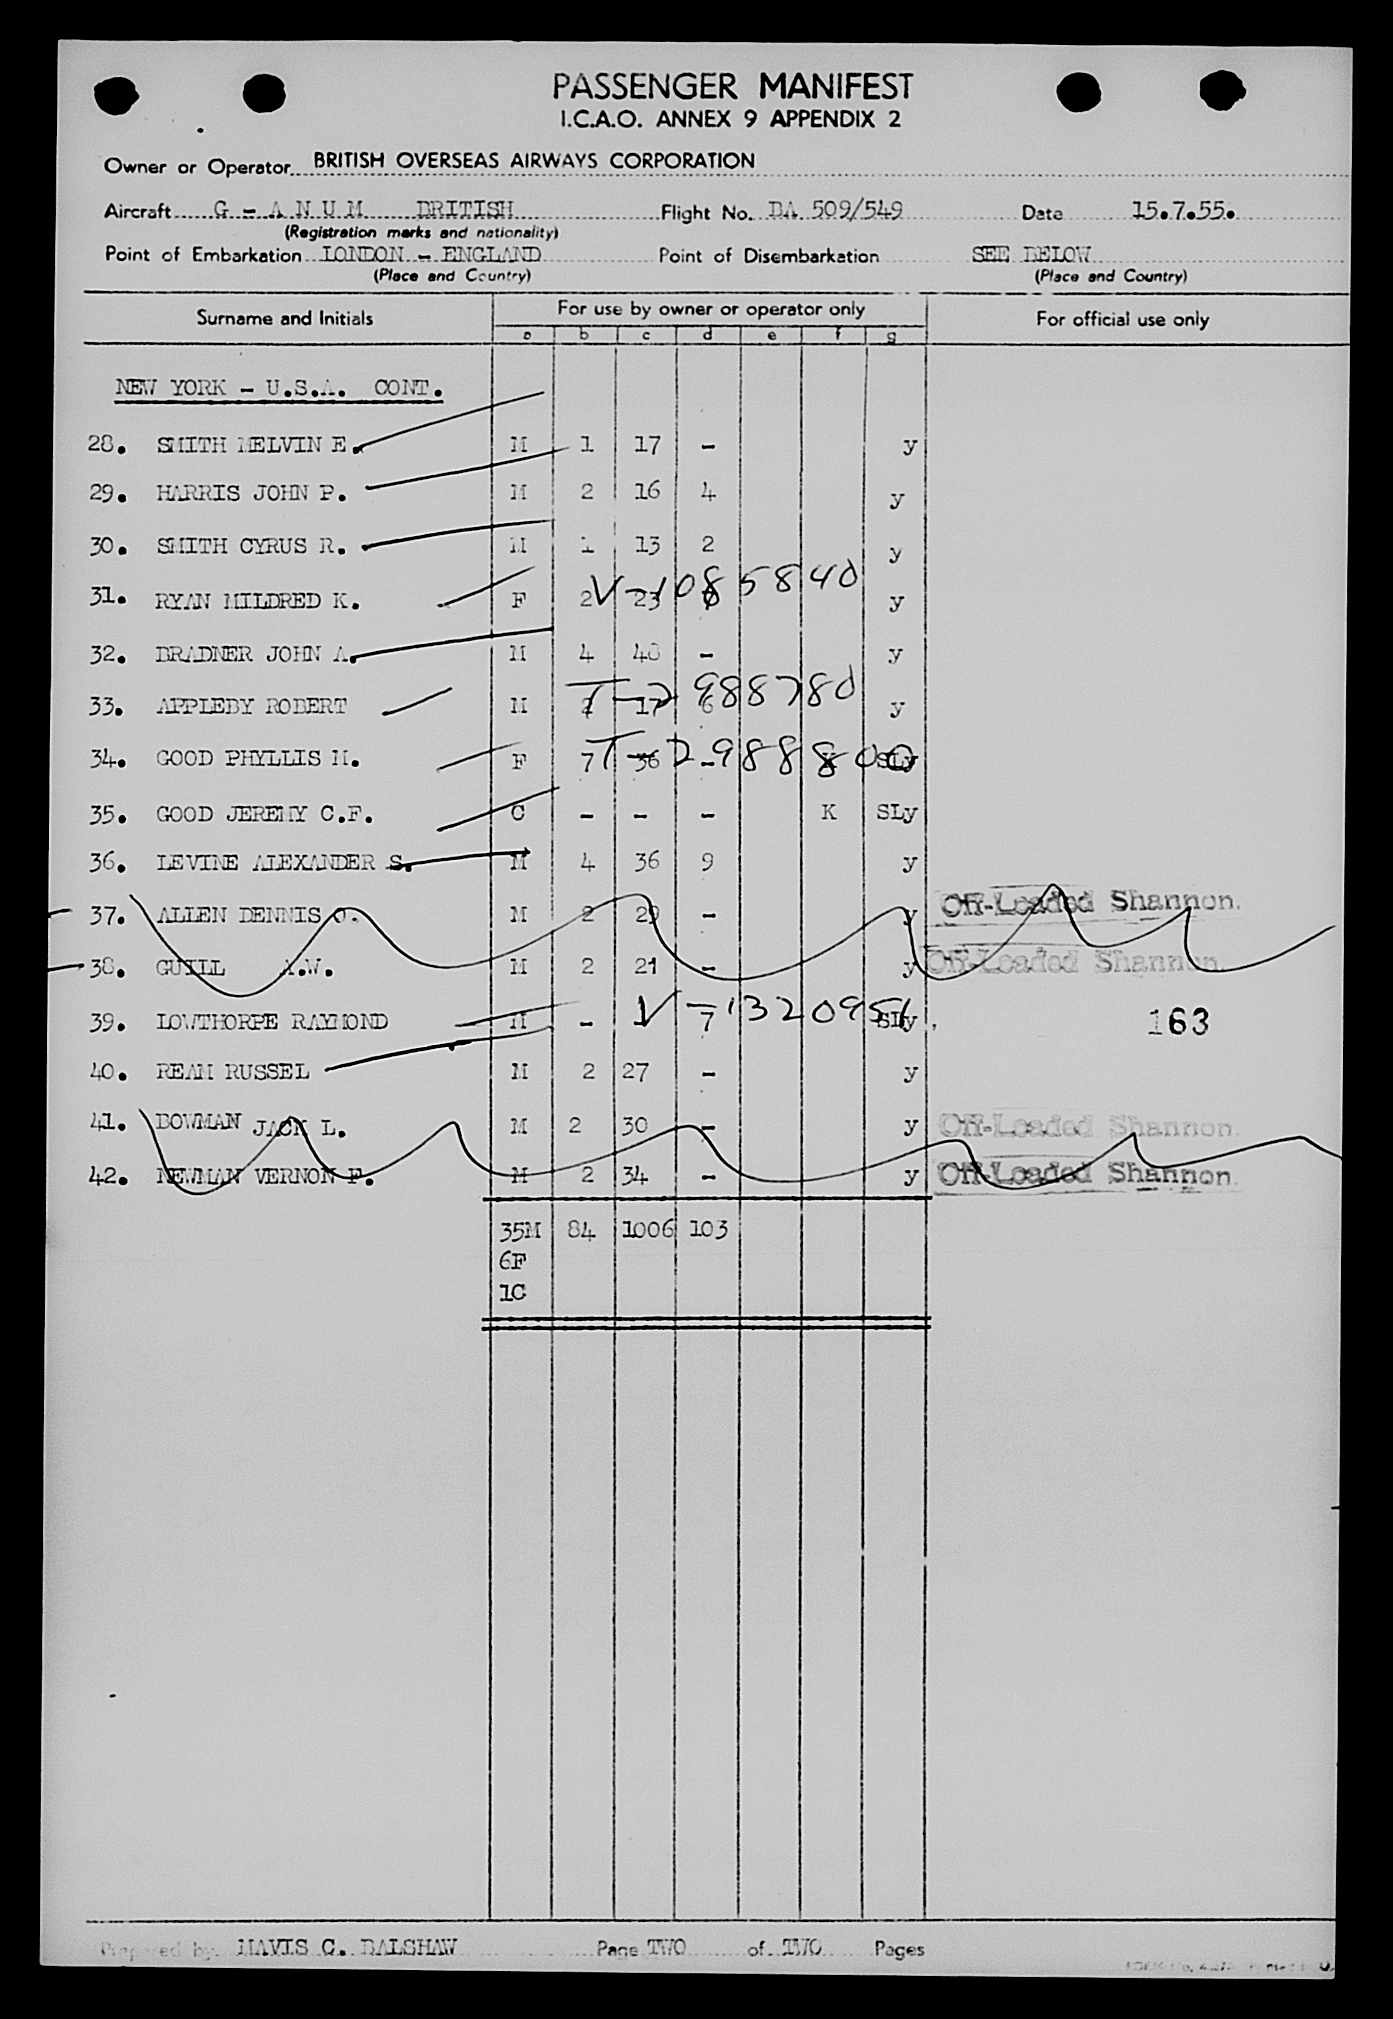 PASSENGER MANIFEST
I.C.A.O. ANNEX 9 APPENDIX 2
Owner or Operator BRITISH OVERSEAS AIRWAYS CORPORATION
Aircraft G - A N U M BRITISH Flight No. BA 509/549 Date 15.7.55.
(Registration marks and nationality)
Point of Embarkation LONDON - ENGLAND Point of Disembarkation SEE BELOW
(Place and Country) (Place and Country)
Surname and Initials For use by owner or operator only For official use only
a b c d e f g
NEW YORK - U.S.A. CONT.
28. SMITH MELVIN E. M 1 17 - y
29. HARRIS JOHN P. M 2 16 4 y
30. SMITH CYRUS R. M 1 13 2 y
V-1085840
31. RYAN MILDRED K. F 2 23 y
32. BRADNER JOHN A. M 4 48 - y
33. APPLEBY ROBERT M 2 17 6 y
34. GOOD PHYLLIS M. F 7 36 - K SLy
T-2988800
35. GOOD JEREMY C.F. C - - - K SLy
36. LEVINE ALEXANDER S. M 4 36 9 y
37. ALLEN DENNIS J. M 2 29 - y Off-Loaded Shannon.
38. GUILL A.W. M 2 21 - y Off-Loaded Shannon.
39. LOWTHORPE RAYMOND M - - 7 SLy 163
40. REAM RUSSEL M 2 27 - y
41. BOWMAN JACK L. M 2 30 - y Off-Loaded Shannon.
42. NEWMAN VERNON F. M 2 34 - y Off-Loaded Shannon.
35M 84 1006 103
6F
1C
Prepared by MAVIS C. BALSHAW Page TWO of TWO Pages